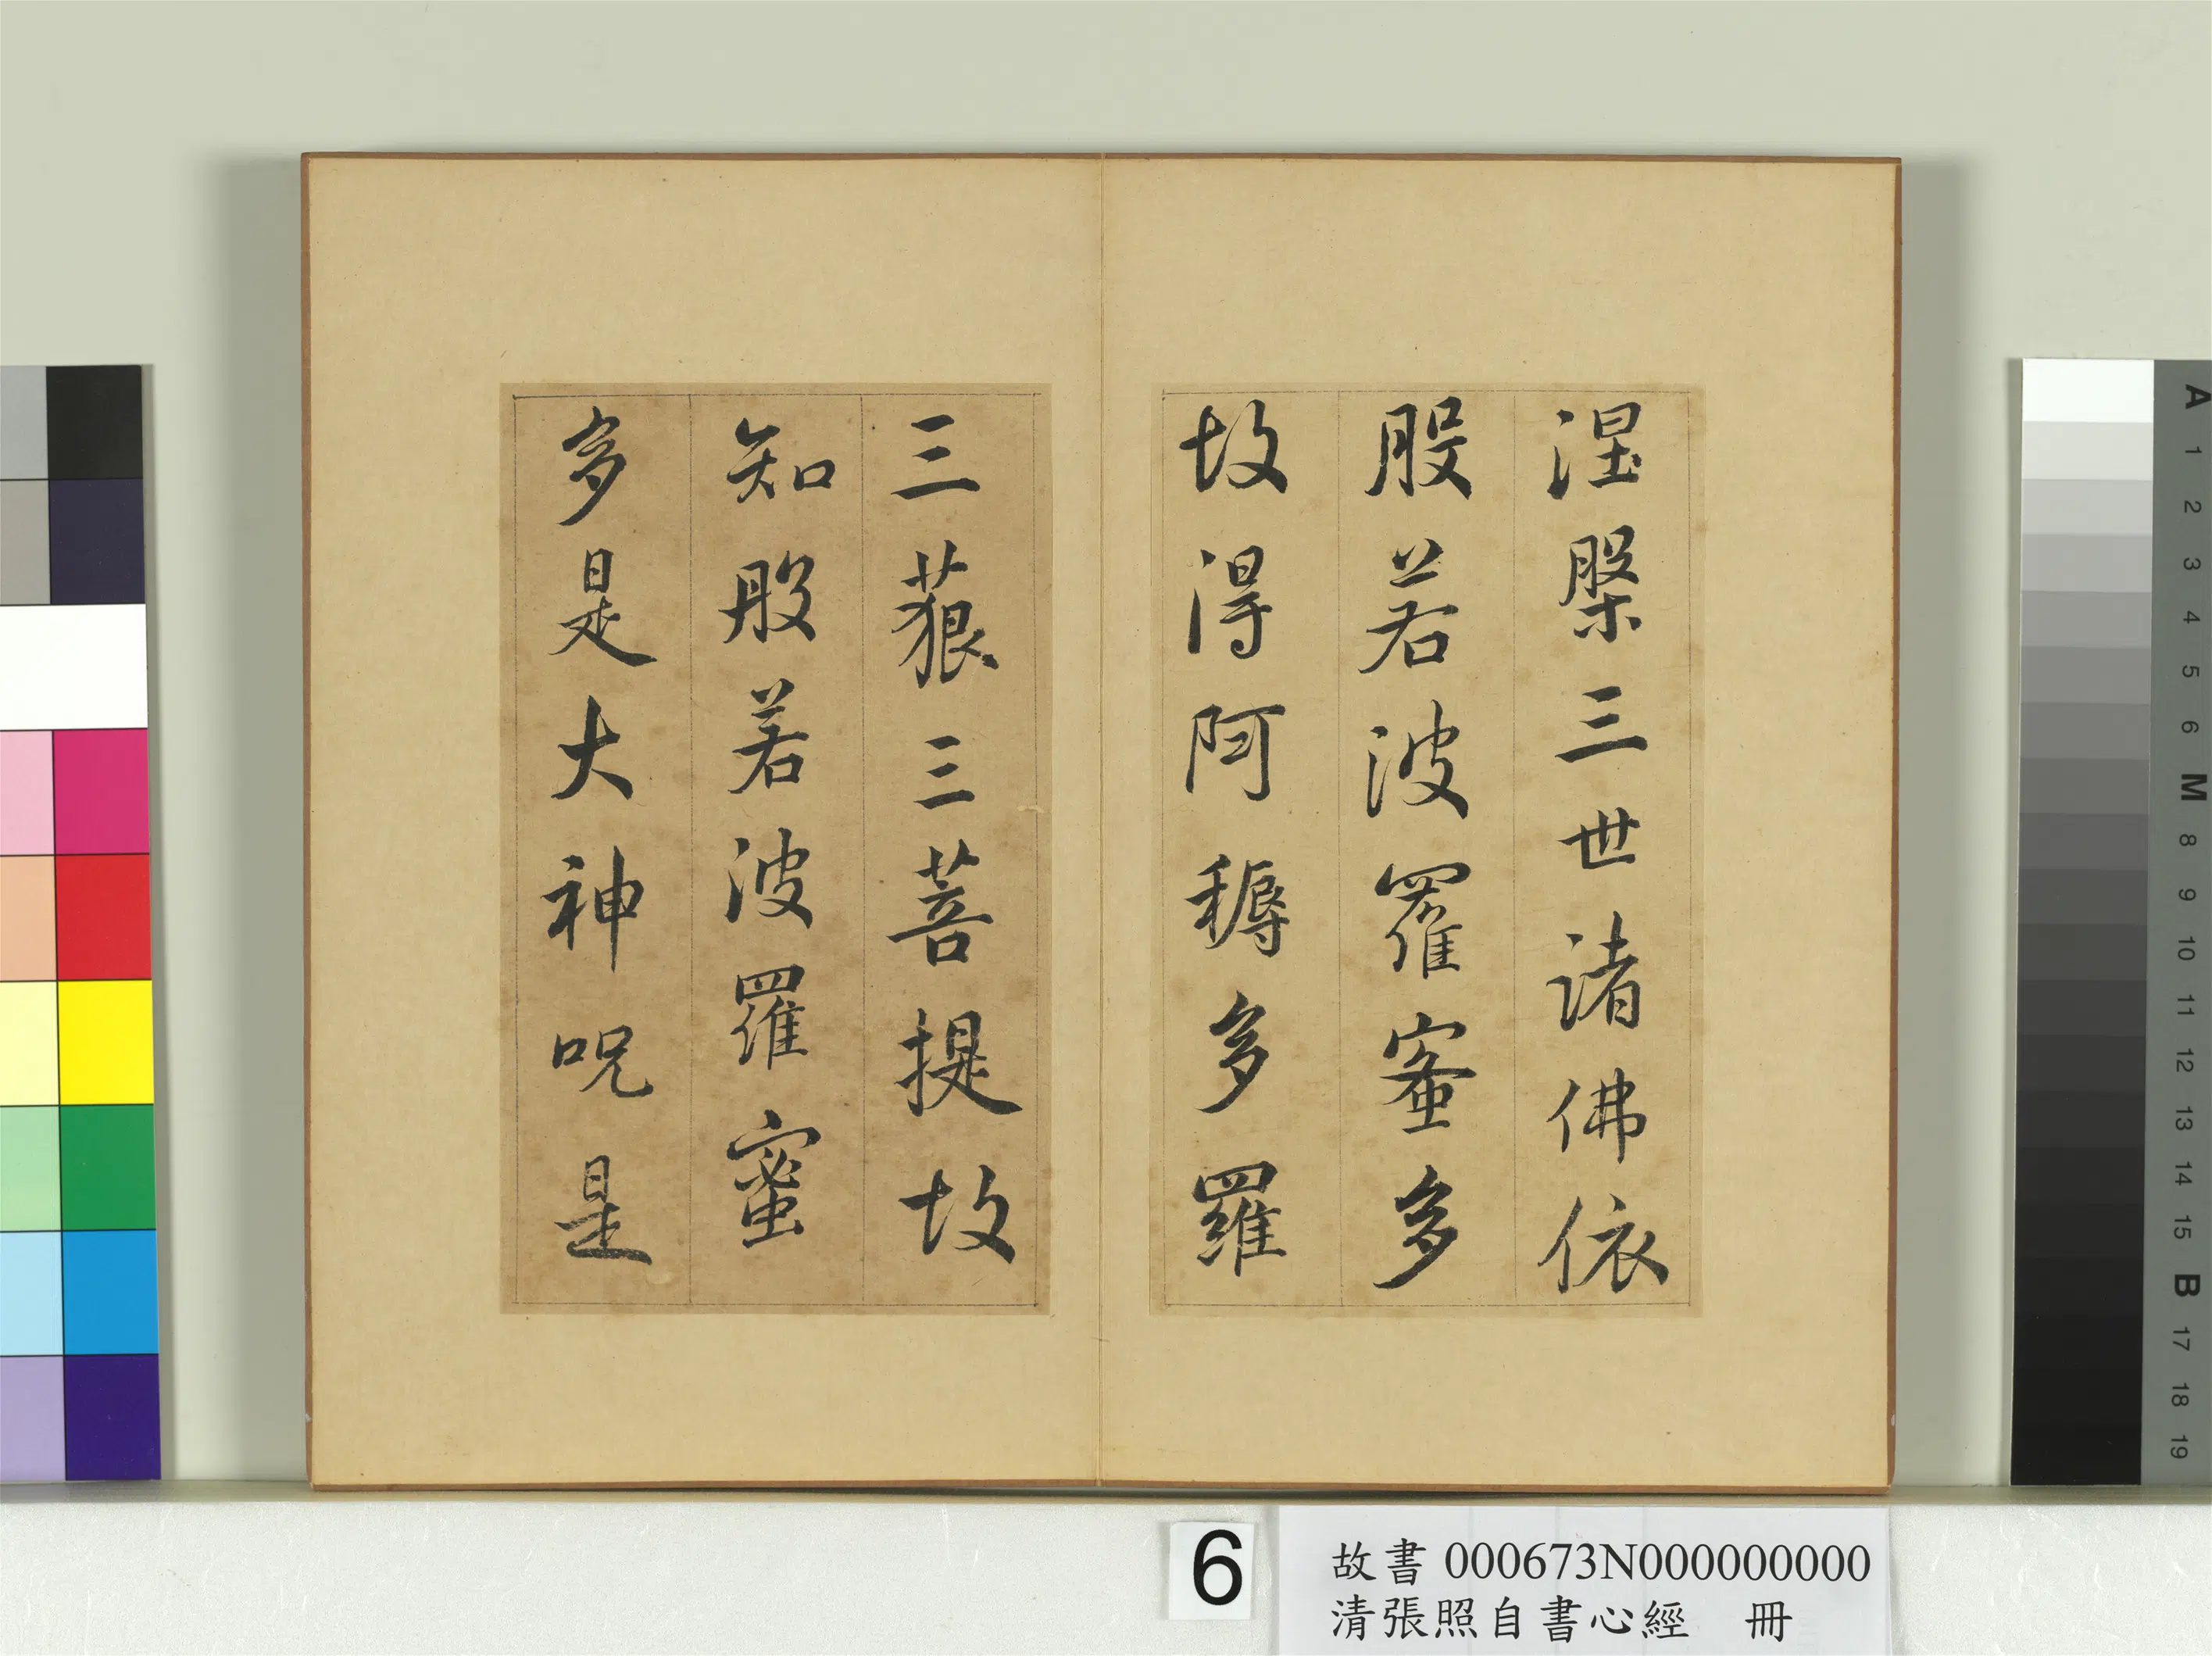 涅槃三世諸佛依
般若波羅蜜多
故得阿耨多羅
三藐三菩提故
知般若波羅蜜
多是大神呪是
6
故書 000673N000000000
清張照自書心經 冊
A
1
2
3
4
5
6
M
8
9
10
11
12
13
14
15
B
17
18
19